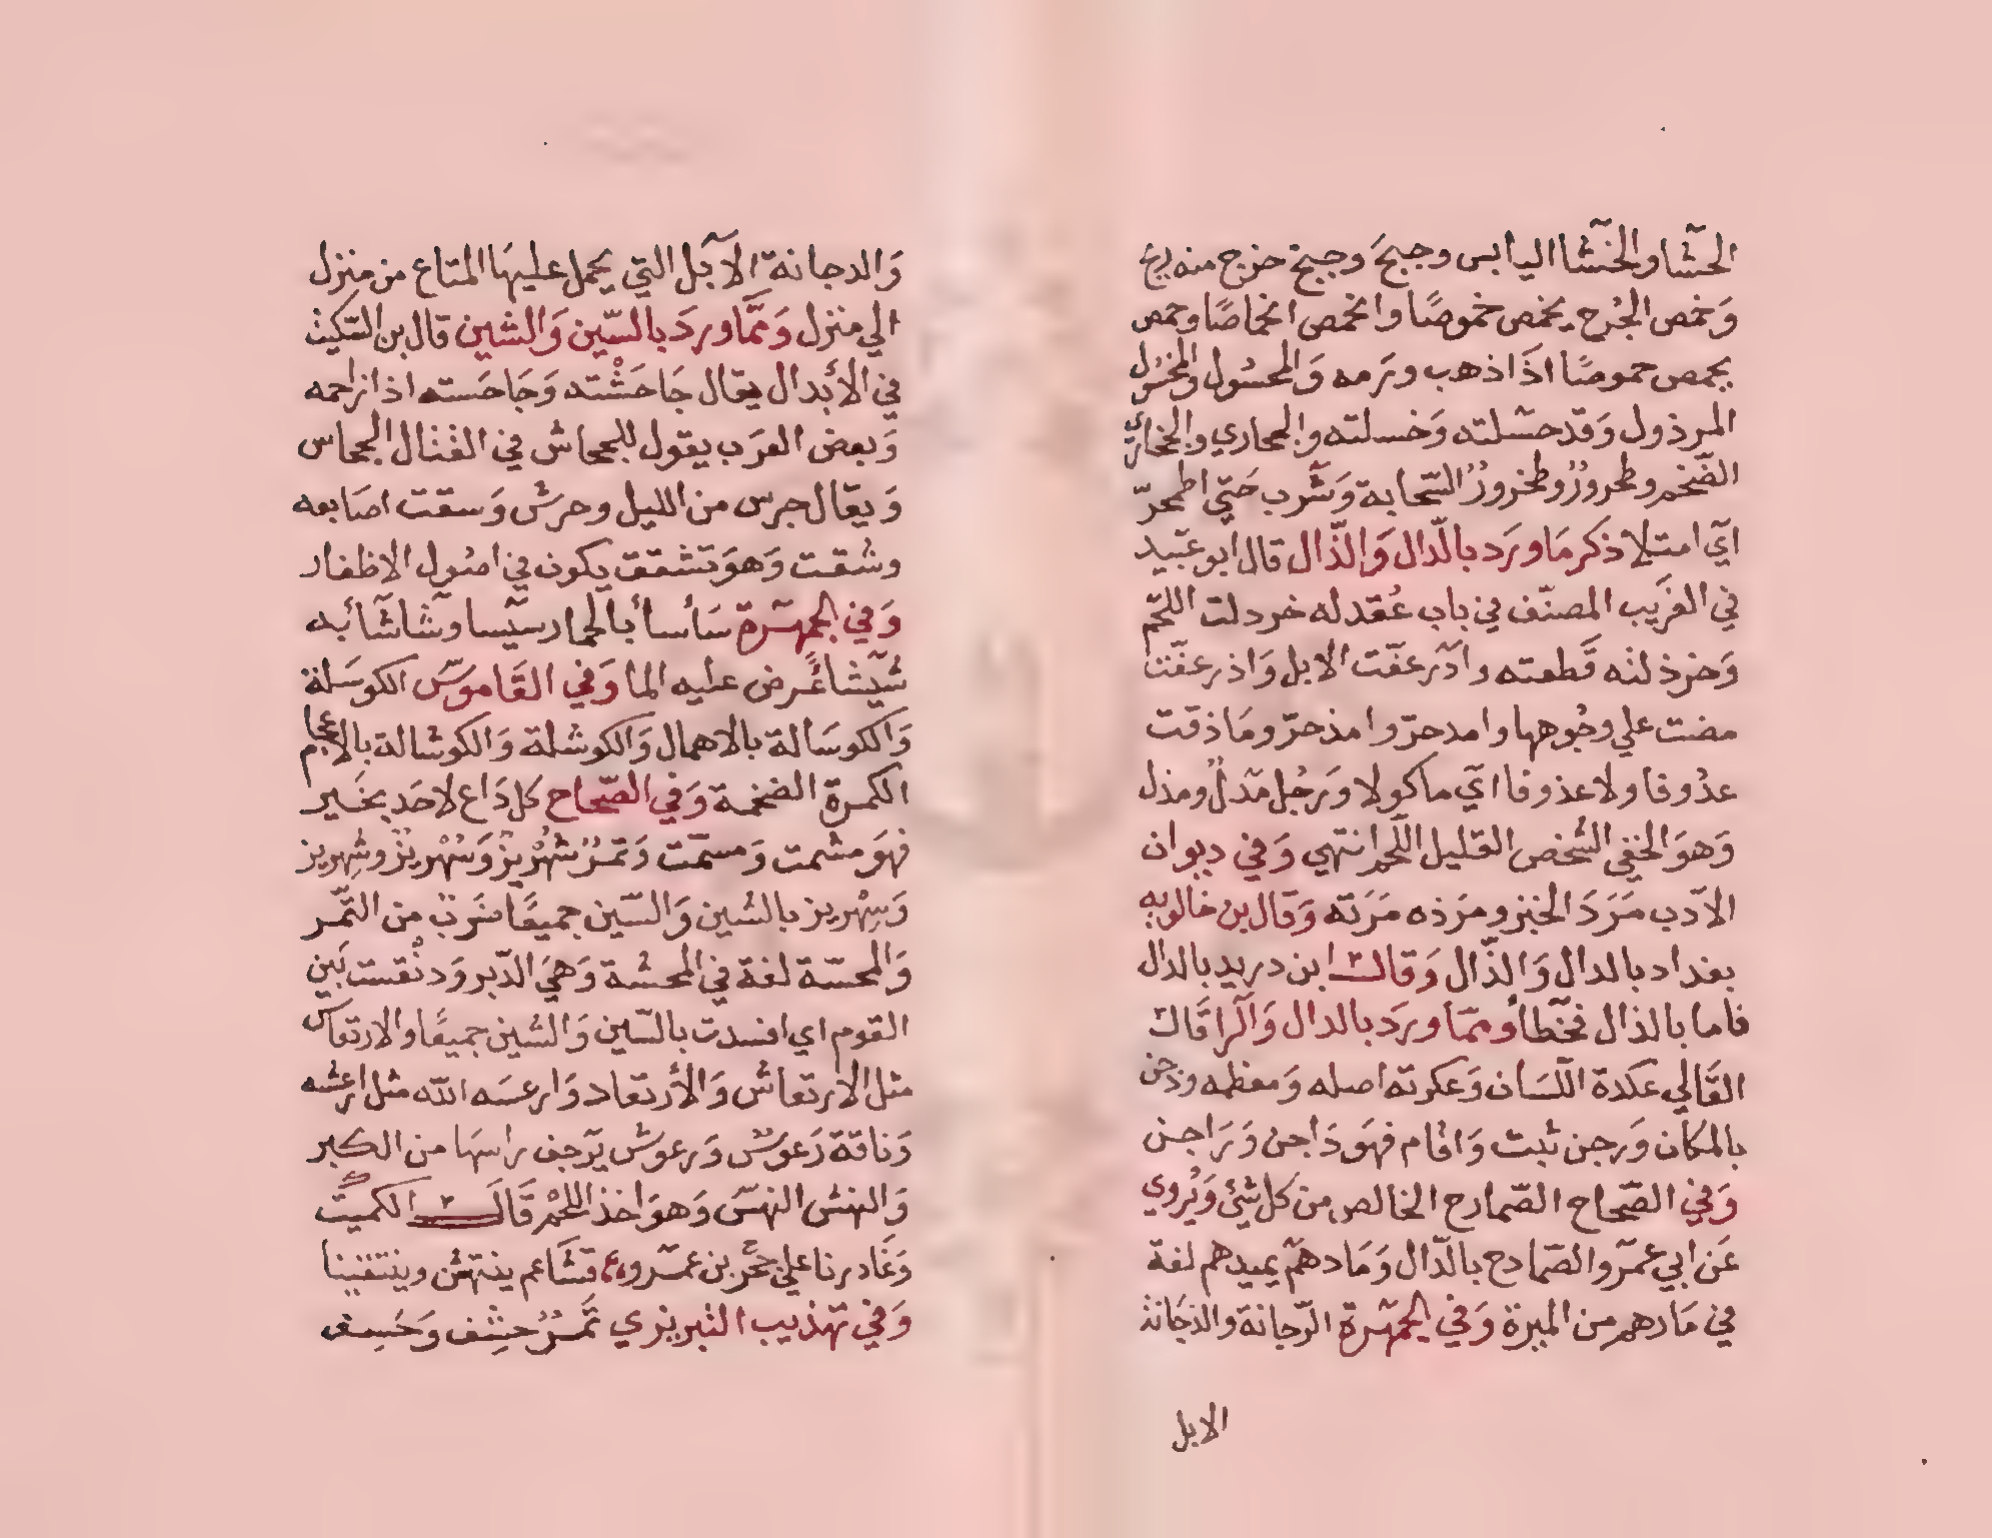 الحَشّا والخَشّا اليابس وجبجَ وجبخ خرج منه ريح
وَخمص الجُرح يخمص خموصًا وانخمص انخماصًا وحمص
يحمص حموصًا اذَا ذهب ورَمه وَالمحسُول والمخسُول
المرذول وَقد حسّلته وَخسلته والجحاري والجخاريّ
الضّخم وطحرورٌ وطخرورٌ السّحابة وَشرب حَتّي اطمحرّ
ايّ امتلا ذكر مَا ورَد بالدّال وَالذّال قال ابو عبّيد
في الغرَيب المصنّف في باب عُقد له خردلت اللحّم
وَخرذلته قَطعته وادّرعفّت الابل وَاذرعفّت
مضت علي وجُوهها وامدحرّ وامذحرّ ومَا ذقت
عدُوفا ولا عذوفا ايّ ماكولا ورَجُل مَدلٌ ومذل
وَهوَ الخفي الشّخص القليل اللّحم انتهي وَفي ديوان
الادّب مَرَدَ الخبز ومرَذه مَرَته وَقال بن خالويه
بغداد بالدال وَالذّال وَقال ابن دريد بالدال
فاما بالذال فخّطأ وممّا ورَد بالدال وَالرّا قَال
القَالي عكدة اللّسَان وَعكرته اصله وَمعظمه ودَجن
بالمكان وَرجن ثبت وَاقام فهوَ دَاجن وَرَاجن
وَفي الصّحاح الصّمارح الخالص من كل شئ وَيُروي
عَن ابي عمرّو الصّمادح بالدّال وَمَادهمّ يميدهم لغة
في مَارهم من الميرة وَفي الجمهرّة الرّجانة والدجَانة
الابل
وَالدجانة الابّل التي يحمل عليهَا المتاع من منزل
الي منزل وَممّا ورَد بالسّين وَالشين قال بن السّكيت
في الأبدال يقال جَاحَشْته وَجَاحَسته اذا زاحمه
وَبعض العرَب يقول للجحاش في القتال الجحاس
وَيقال جرس من الليل وجرَش وَسقت اصَابعه
وشُقت وَهوَ تشقق يكون في اصُول الاظفار
وَفي الجمهرّة سَأسأ بالحمار سيّسا وشَاشّأ به
شّيّشا عَرض عليه الما وَفي القَاموسّ الكوسَلة
وَالكوسَالة بالاهمال وَالكوشلة وَالكوشالة بالاعجام
الكمرة الضخمة وَفي الصّحاح كل دَاع لاحَد بخَير
فهوَ مشمت وَمسمّت وَتمرٌ شُهْريزٌ وَسُهْريزٌ وشِهريز
وَسِهْريز بالشين وَالسّين جميعًا ضَربٌ من التّمر
وَالمحسّة لغة في المحشة وَهيَ الدّبر وَدنْقست بَين
القوم اي افسدت بالسّين وَالشين جميعًا والارتعاس
مثل الارتعاش وَالأرتعاد وَارعسَه الله مثل ارعشه
وَناقة رَعوسٌ وَرعوش يَرّجف راسهَا من الكبر
وَالنهش النهسّ وَهوَ اخذ اللحْم قَالَ الكميت
وَغَادرنا علي حُجر بن عمرّو قشَاعم ينتهشن وينتقينا
وَفي تهذيب التبريزي تَمرٌ حشِف وَحَسِف